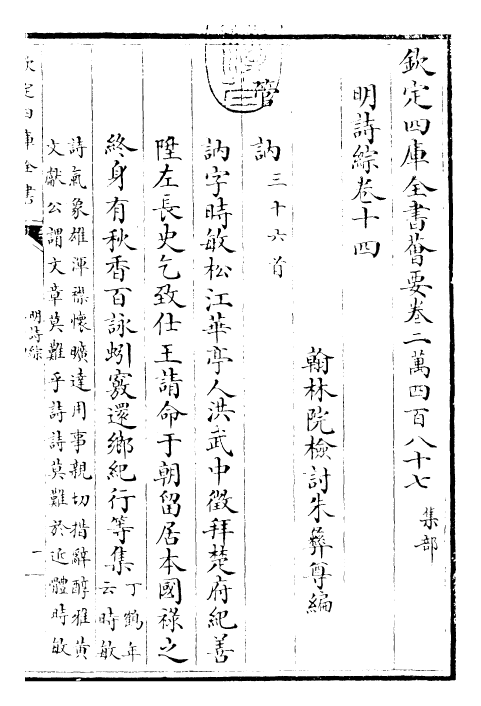 欽定四庫全書薈要卷二萬四百八十七 集部
明詩綜卷十四
翰林院檢討朱彝尊編
管訥三十六首
訥字時敏松江華亭人洪武中徵拜楚府紀善
陞左長史乞致仕王請命于朝留居本國祿之
終身有秋香百詠蚓竅還鄉紀行等集
丁鶴年
云時敏
詩氣象雄渾襟懷曠達用事親切措辭醇雅黄
文獻公謂文章莫難乎詩詩莫難於近體時敏
欽定四庫全書
明詩綜
一